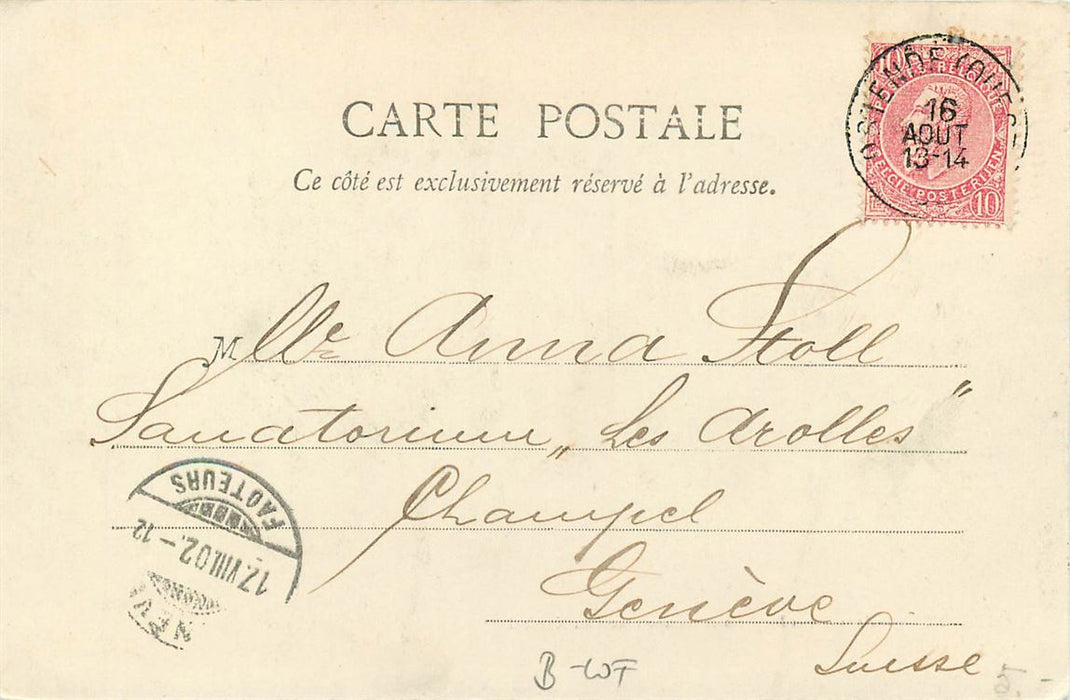 CARTE POSTALE
Ce côté est exclusivement réservé à l'adresse.
10 10
16
AOUT
13-14
BELGIE POSTERIJEN
10
Mlle Anna Stoll
Sanatorium „Les Arolles"
Champel
Genève
Suisse
FACTEURS
17.VIII.02.-12
B-WF